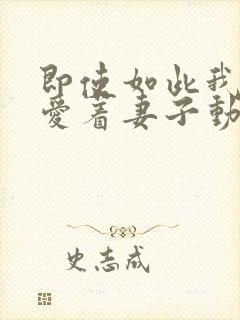 即使如此我
爱着妻子動
史志成